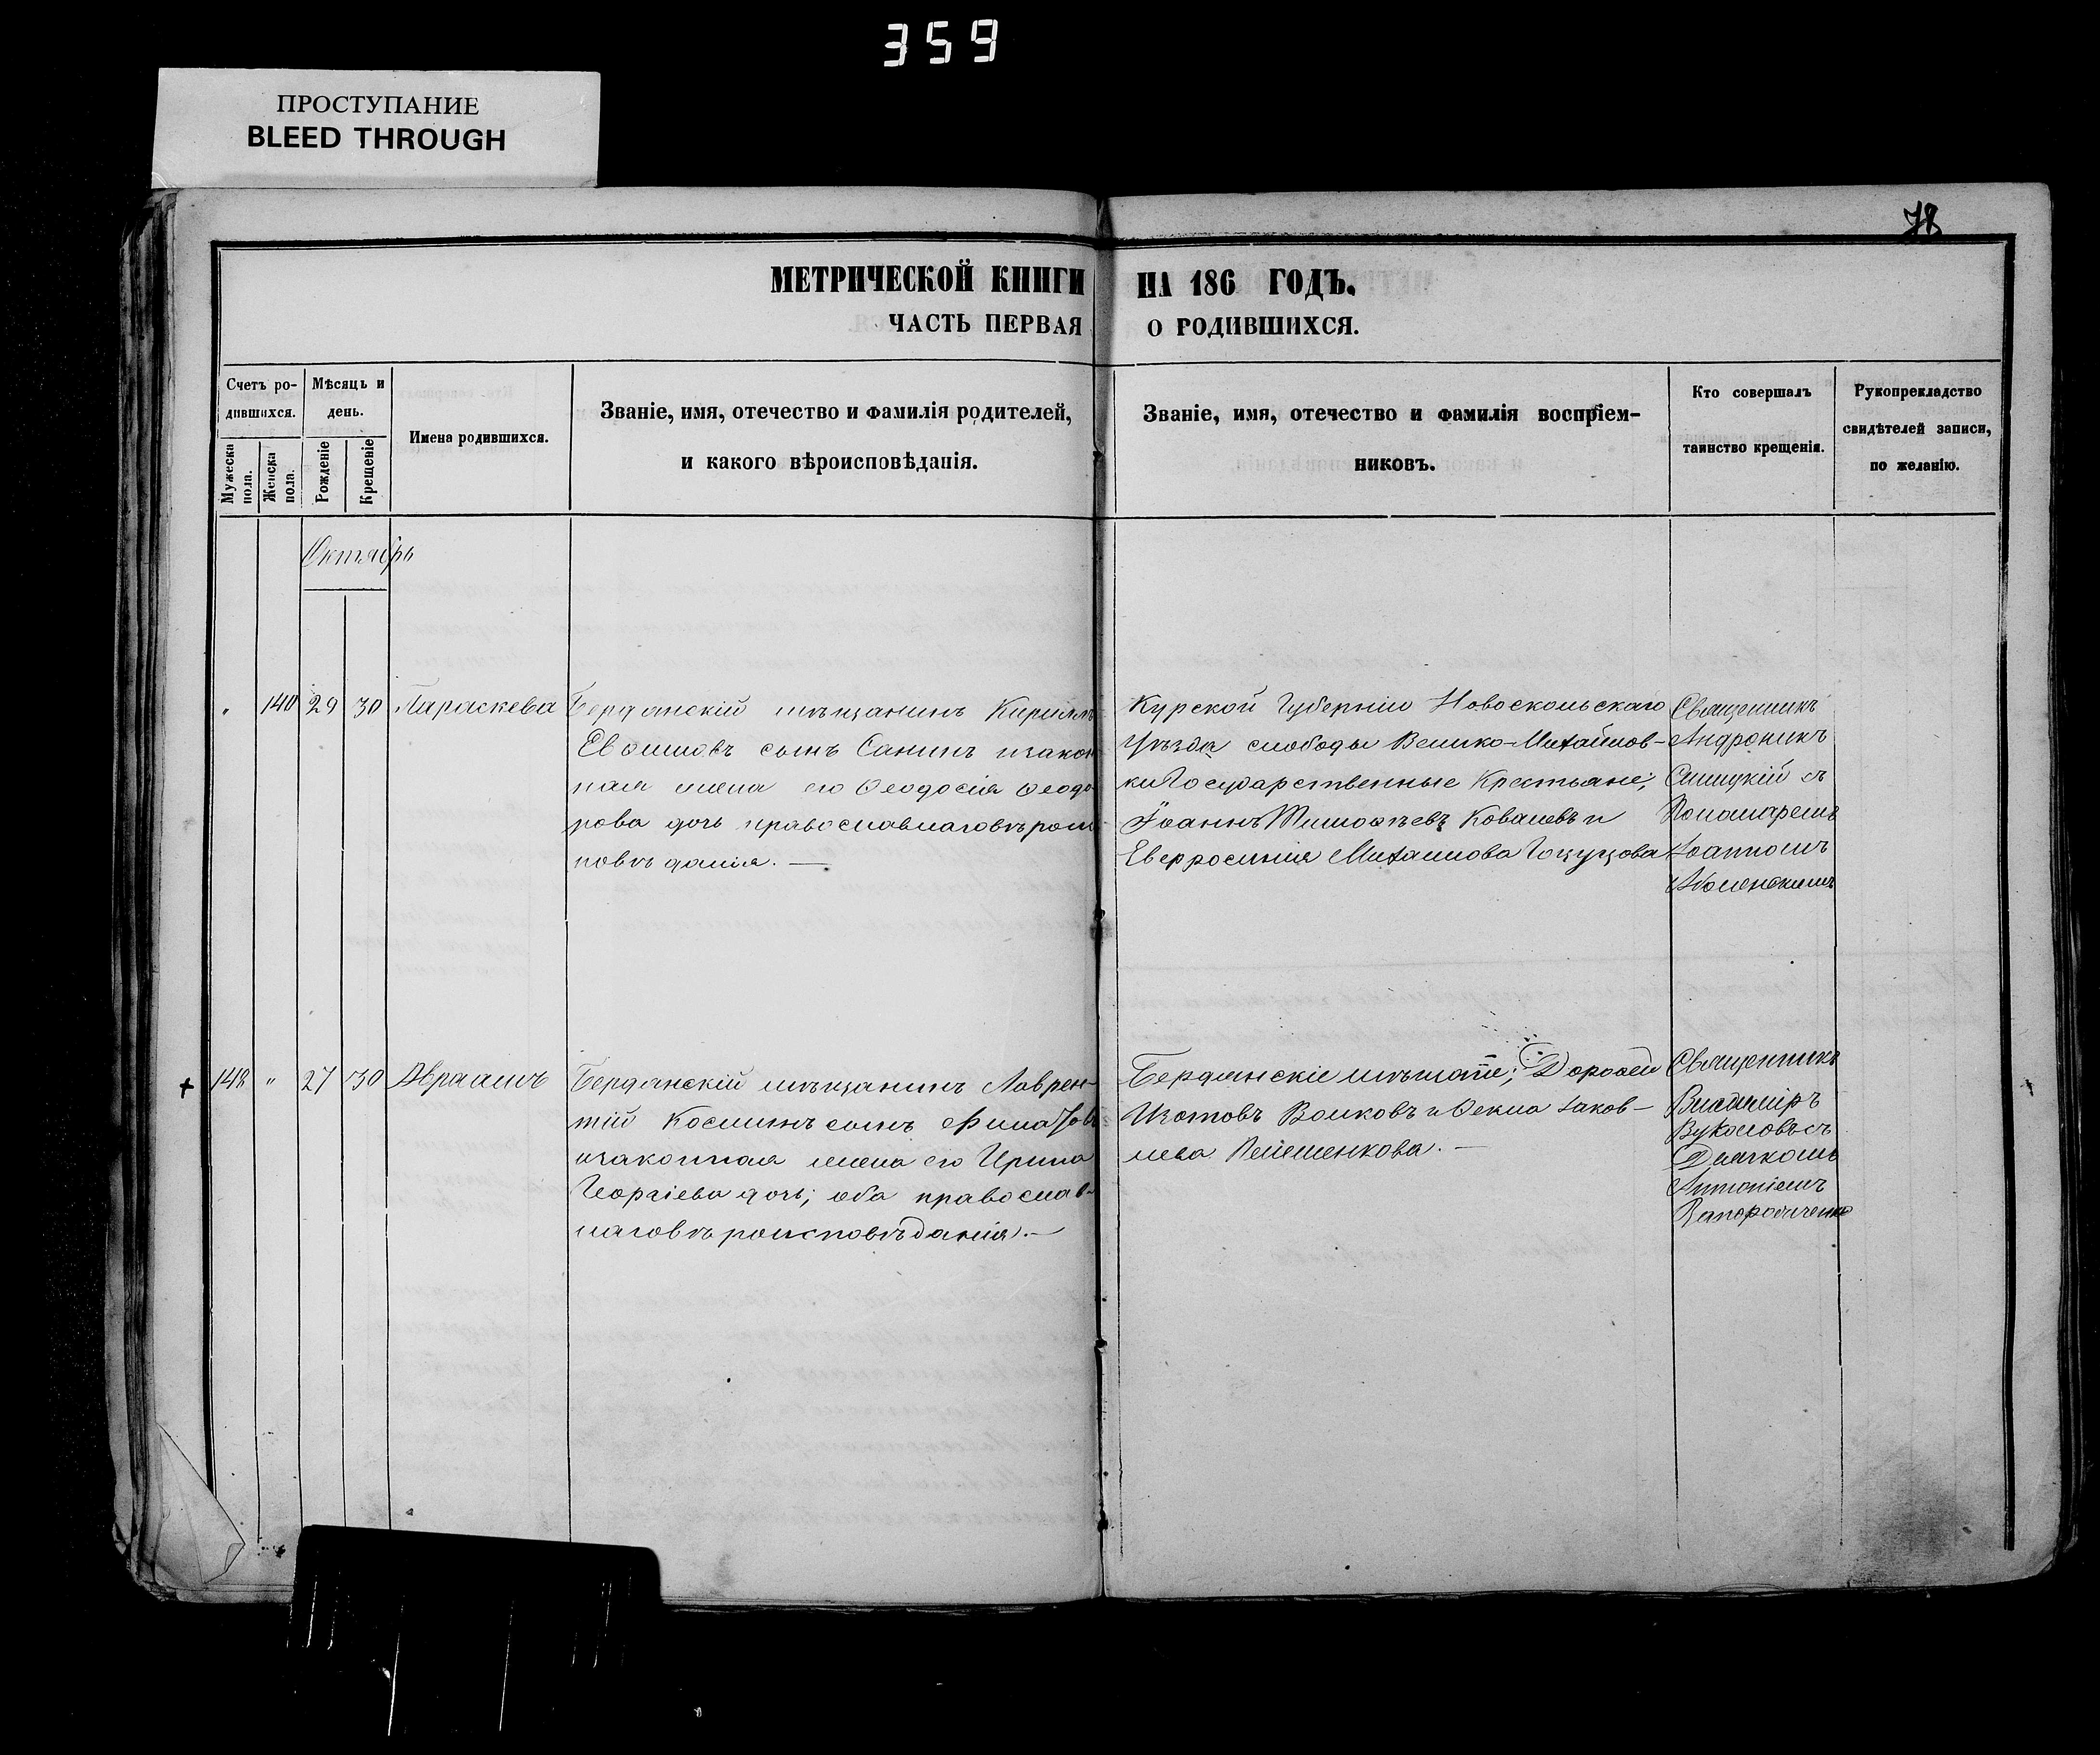 359
ПРОСТУПАНИЕ
BLEED THROUGH
78
МЕТРИЧЕСКОЙ КНИГИ НА 186 ГОДЪ.
ЧАСТЬ ПЕРВАЯ О РОДИВШИХСЯ.
Счетъ ро-
дившихся.
Мужеска
пола.
Женска
пола.
Мѣсяць и
день.
Рожденіе
Крещеніе
Имена родившихся.
Званіе, имя, отечество и фамилія родителей,
и какого вѣроисповѣданія.
Званіе, имя, отечество и фамилія воспріем-
никовъ.
Кто совершалъ
таинство крещенія.
Рукоприкладство
свидѣтелей записи,
по желанію.
Октябрь
140 29 30 Параскева
Бердянскій мѣщанинъ Кириллъ
сынъ Санинъ изакон
ная жена его Ѳеодосія Ѳеодо
рова дочь православнаговѣрои
повѣданія. —
Курской Губерніи Новоскольскаго
Уѣзда слободы Велико-Михайлов-
ки Государственные Крестьяне;
Іоаннъ Тимоѳѣевъ Ковалевъ и
Евфросинія Михаилова
Священникъ
Андроникъ
съ
Пономаремъ
Іоанномъ
+ 148 " 27 30 Авраамъ
Бердянскій мѣщанинъ Лаврен-
тій Косминъ сынъ
изаконная жена его Ирина
Георгіева дочь; оба православ-
наговѣроисповѣданія. —
Бердянскіе мѣщане; Дороѳей
Изотовъ Волковъ и Ѳекла Іаков-
лева —
Священникъ
Владиміръ
Вуколовъ съ
Дьячкомъ
Антоніемъ